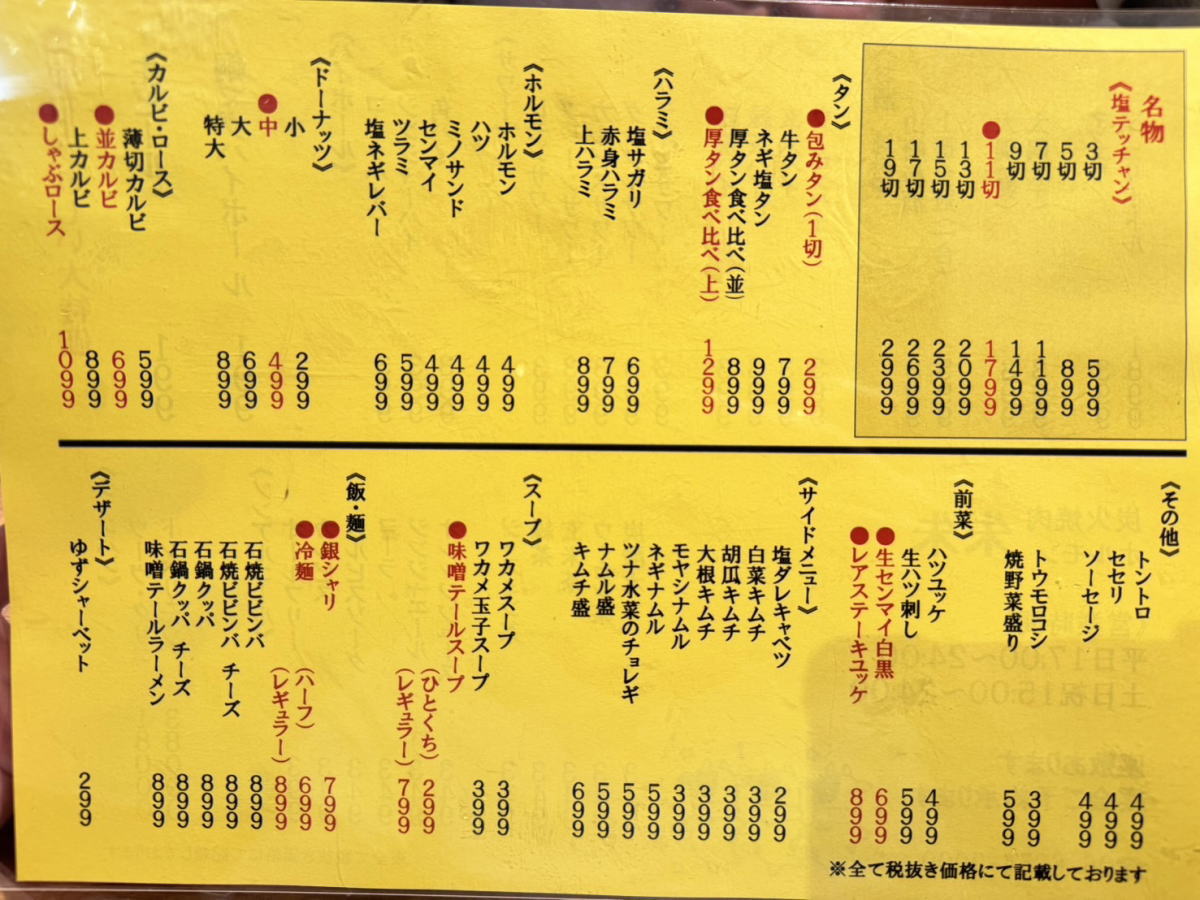 名物
《塩テッチャン》
3切 599
5切 899
7切 1199
9切 1499
●11切 1799
13切 2099
15切 2399
17切 2699
19切 2999
《タン》
●包みタン(1切) 299
牛タン 799
ネギ塩タン 999
厚タン食べ比べ(並) 899
●厚タン食べ比べ(上) 1299
《ハラミ》
塩サガリ 699
赤身ハラミ 799
上ハラミ 899
《ホルモン》
ホルモン 499
ハツ 499
ミノサンド 499
センマイ 499
ツラミ 599
塩ネギレバー 699
《ドーナッツ》
小 299
●中 499
大 699
特大 899
《カルビ・ロース》
薄切カルビ 599
●並カルビ 699
上カルビ 899
●しゃぶロース 1099
《その他》
トントロ 499
セセリ 499
ソーセージ 499
トウモロコシ 399
焼野菜盛り 599
《前菜》
ハツユッケ 499
生ハツ刺し 599
●生センマイ白黒 699
●レアステーキユッケ 899
《サイドメニュー》
塩ダレキャベツ 299
白菜キムチ 399
胡瓜キムチ 399
大根キムチ 399
モヤシナムル 399
ネギナムル 599
ツナ水菜のチョレギ 599
ナムル盛 599
キムチ盛 699
《スープ》
ワカメスープ 399
ワカメ玉子スープ 399
●味噌テールスープ (ひとくち) 299
(レギュラー) 799
《飯・麺》
●銀シャリ 799
●冷麺 (ハーフ) 699
(レギュラー) 899
石焼ビビンバ 899
石焼ビビンバ チーズ 899
石鍋クッパ 899
石鍋クッパ チーズ 899
味噌テールラーメン 899
《デザート》
ゆずシャーベット 299
※全て税抜き価格にて記載しております